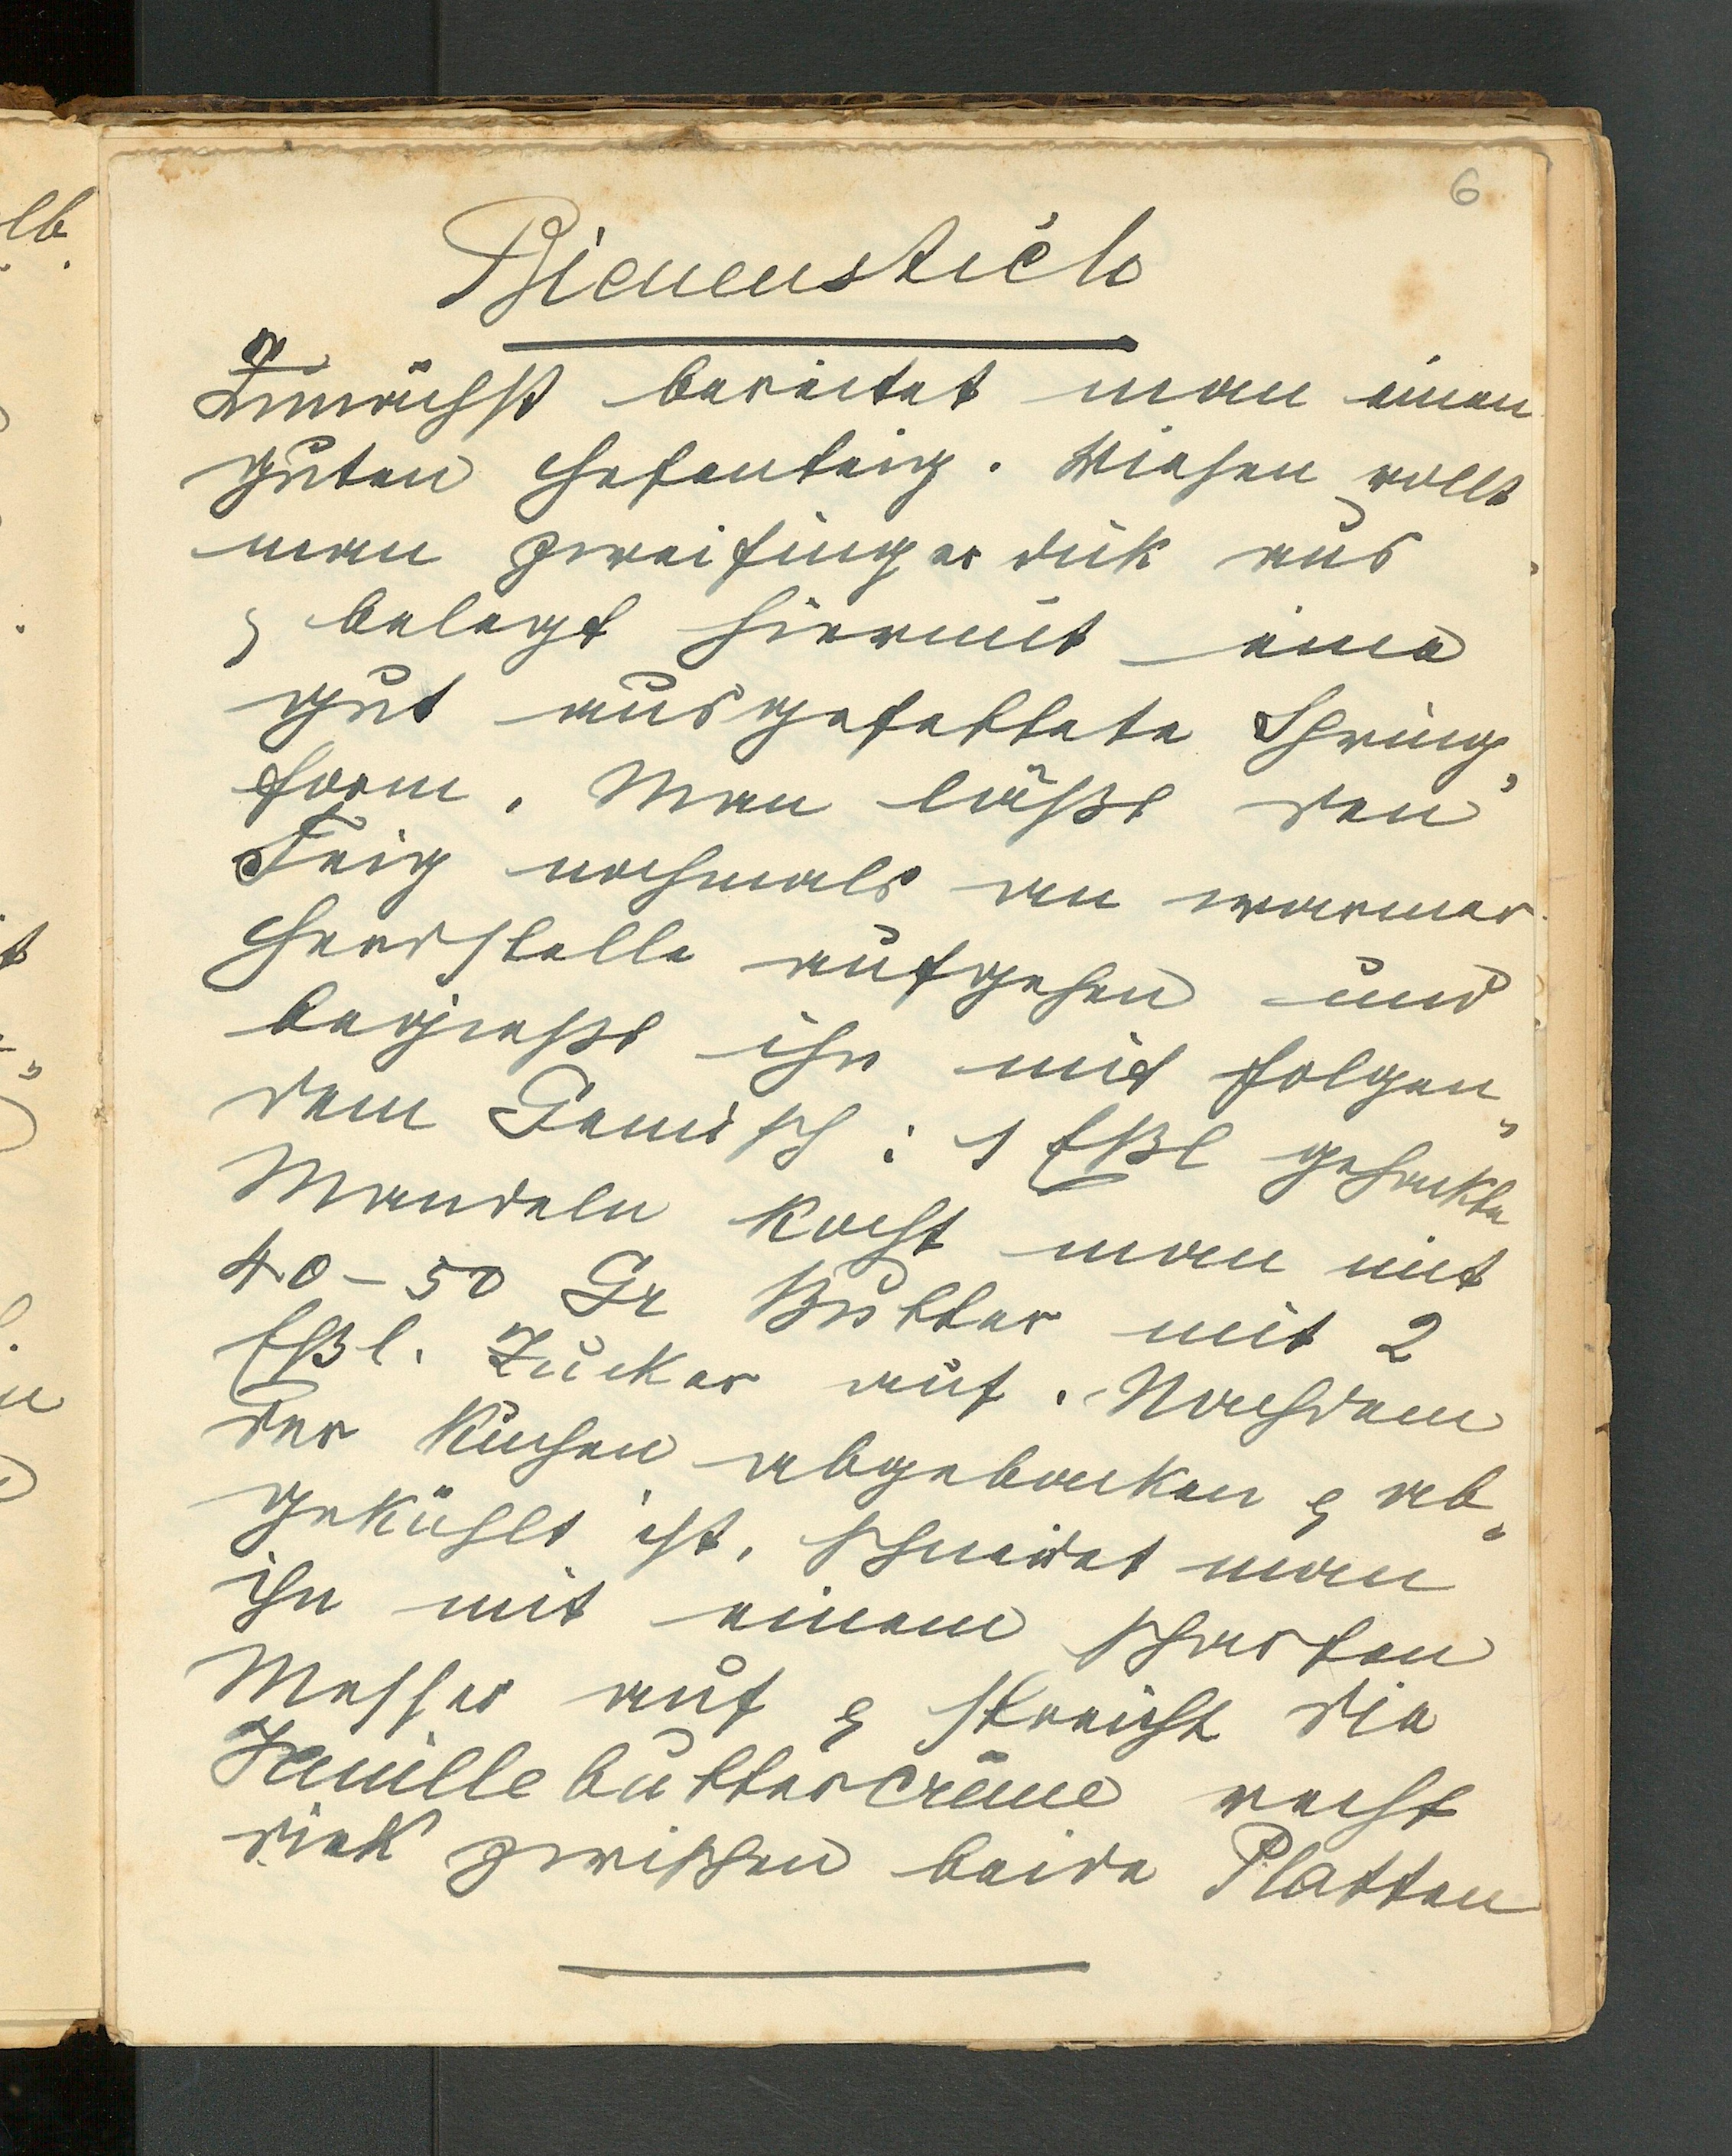 6
Bienenstich
Zunächst bereitet man einen
guten Hefenteig. Diesen rollt
man zweifinger dick aus
& belegt hiermit eine
gut ausgefettete Spring„
form. Man läßt den
Teig nochmals an warmer
Herdstelle aufgehen und
begießt ihn mit folgen„
dem Gemisch: 1 Eßl gehackte
Mandeln kocht man mit
40-50 Gr Butter mit 2
Eßl. Zucker auf. Nachdem
der Kuchen abgebacken & ab„
gekühlt ist, schneidet man
ihn mit einem scharfen
Messer auf & streicht die
Vanillebuttercrème recht
dick zwischen beide Platten
lb.